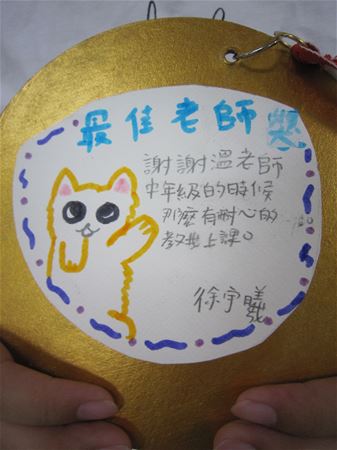 最佳老師獎
謝謝溫老師
中年級的時候
那麼有耐心的
教世上課。
徐宇曦